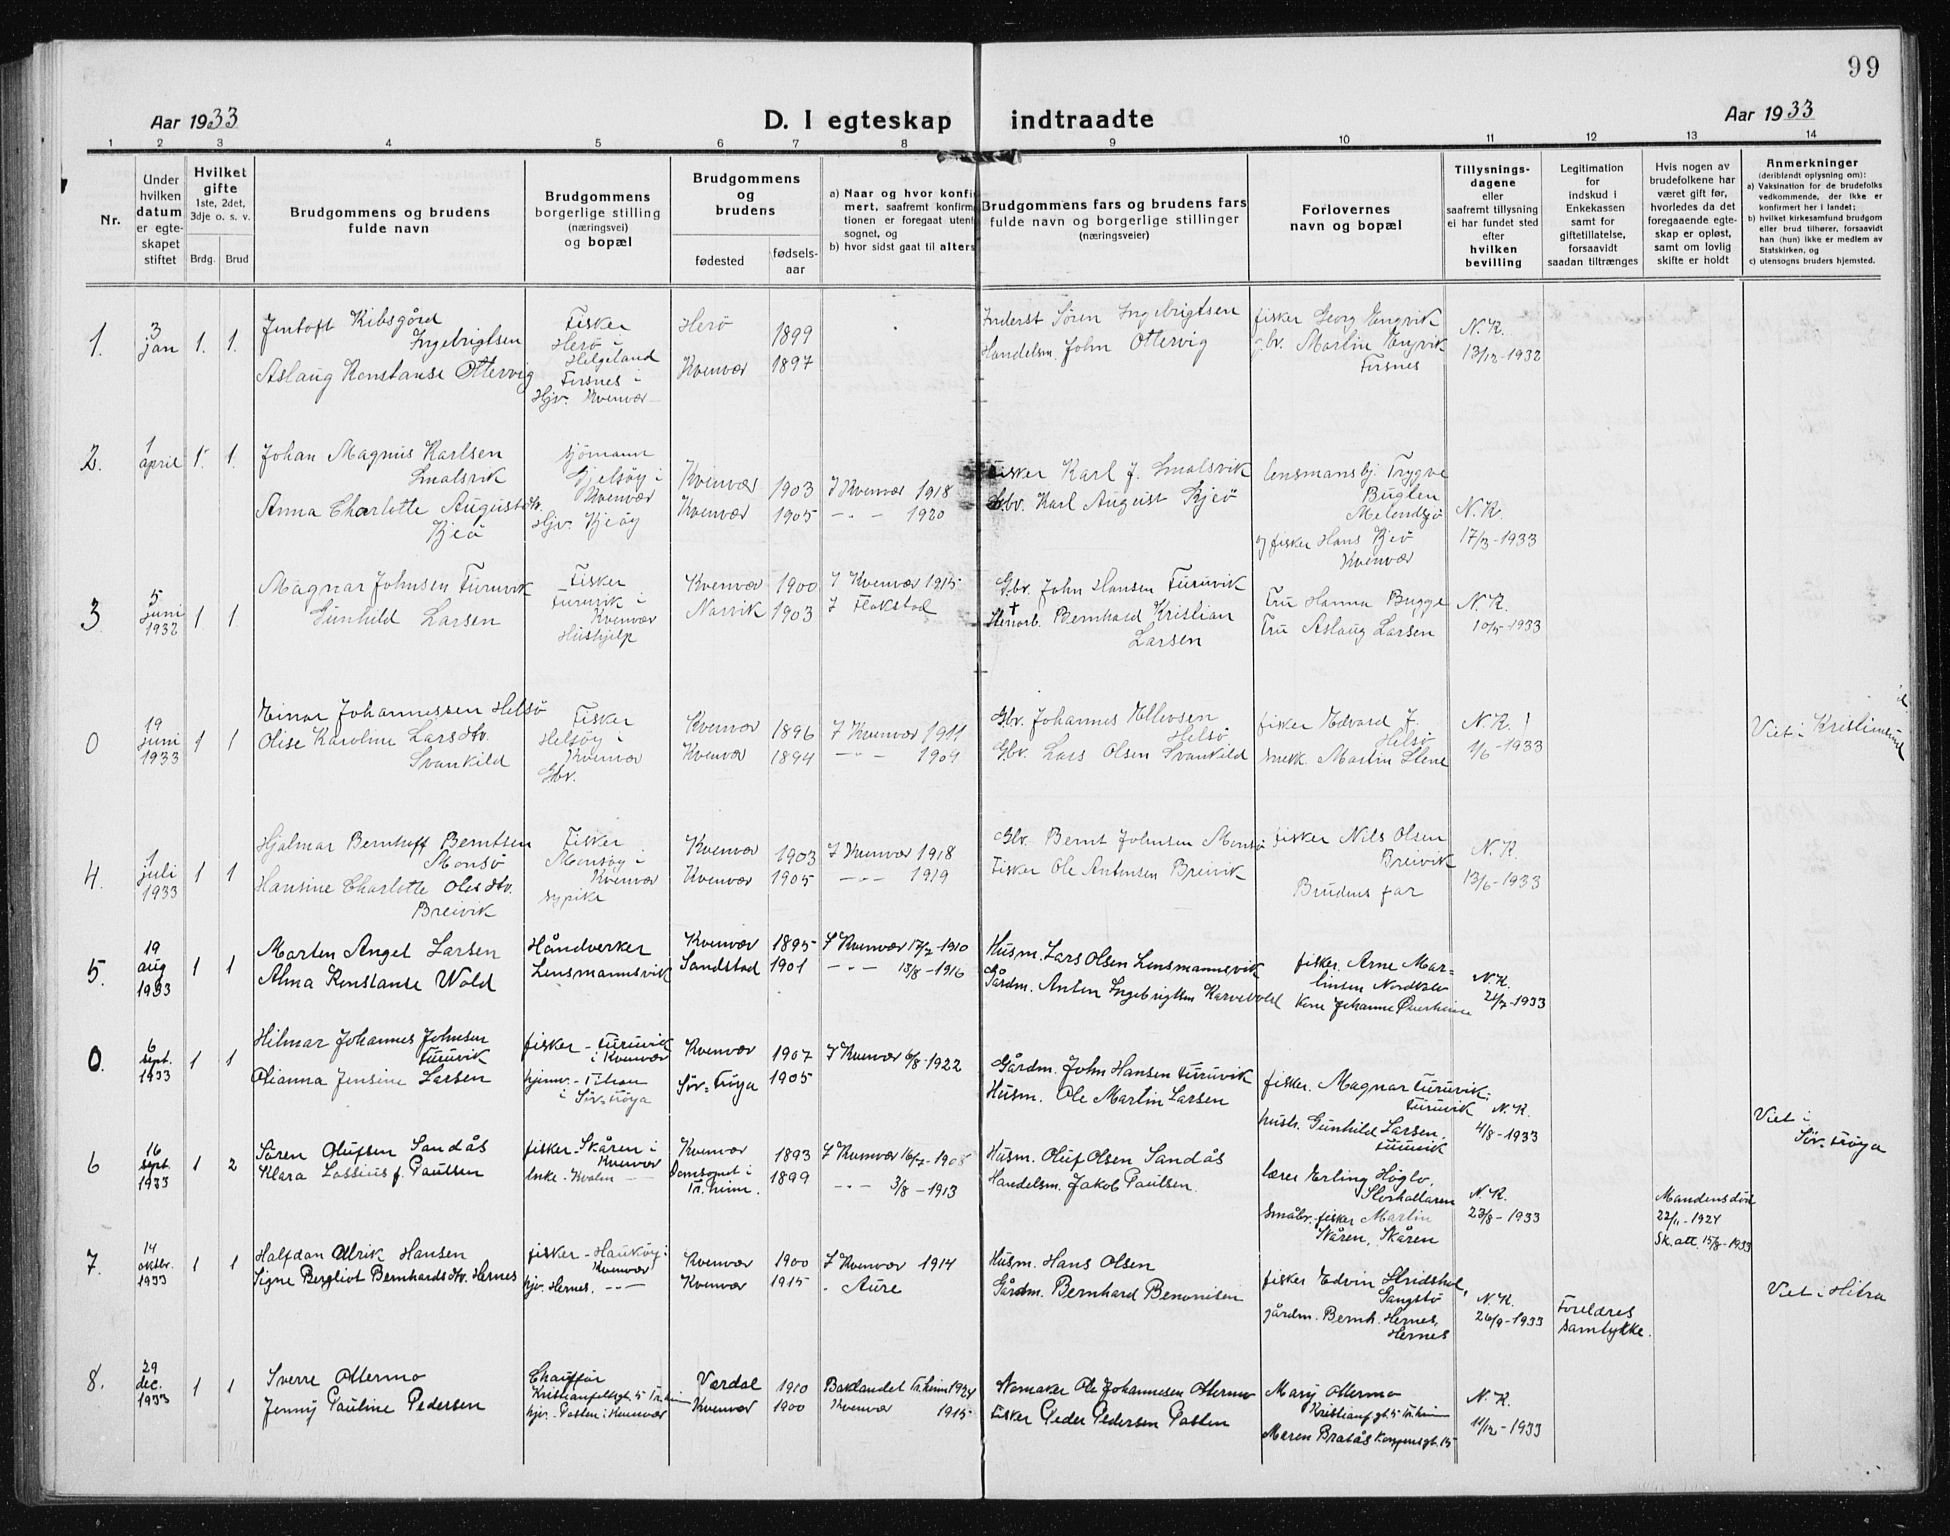 99
Aar 1933
D. I egteskap indtraadte
Aar 1933
1 2 3 4 5 6 7 8 9 10 11 12 13 14
Nr.
Under
hvilken
datum
er egte-
skapet
stiftet
Hvilket
gifte
1ste, 2det,
3dje o. s. v.
Brdg. Brud
Brudgommens og brudens
fulde navn
Brudgommens
borgerlige stilling
(næringsvei)
og bopæl
Brudgommens
og
brudens
fødested
fødsels-
aar
a) Naar og hvor konfir-
mert, saafremt konfirma-
tionen er foregaat utenfor
sognet, og
b) hvor sidst gaat til alters
Brudgommens fars og brudens fars
fulde navn og borgerlige stillinger
(næringsveier)
Forlovernes
navn og bopæl
Tillysnings-
dagene
eller
saafremt tillysning
ei har fundet sted
efter
hvilken
bevilling
Legitimation
for
indskud i
Enkekassen
samt for
giftetillatelse,
forsaavidt
saadan tiltrænges
Hvis nogen av
brudefolkene har
været gift før,
hvorledes da det
foregaaende egte-
skap er opløst,
samt om lovlig
skifte er holdt
Anmerkninger
(deriblandt oplysning om):
a) Vaksination for de brudefolks
vedkommende, der ikke er
konfirmert her i landet;
b) hvilket kirkesamfund brudgom
eller brud tilhører, forsaavidt
han (hun) ikke er medlem av
Statskirken, og
c) utensogns bruders hjemsted.
1. 3 jan 1. 1.
Jentoft Kibsgård
Ingebrigtsen
Aslaug Konstanse Ottervig
Fisker
Herö i
Helgeland
Forsnes i
Hjv. Kvenvær
Herö 1899
Kvenvær 1897
Inderst Sören Ingebrigtsen
Handelsm. John Ottervig
fisker Georg Engvik
gbr. Martin Engvik
Forsnes
N.K.
13/12-1932
2. 1 april 1. 1.
Johan Magnus Karlsen
Smalsvik
Anna Charlotte Augustdtr.
Kjeö
sjömann
Gjelsöy i
Kvenvær
Hjv. Kjeöy
Kvenvær 1903 I Kvenvær 1918
Kvenvær 1905 -"- 1920
Fisker Karl J. Smalsvik
Gbr. Karl August Kjeö
lensmansbj. Trygve
Buglen
Melandsjö
og fisker Hans Kjeö
Kvenvær
N.K.
17/3-1933
3 5 juni 1932 1 1.
Magnar Johnsen Furuvik
Gunhild Larsen
Fisker
Furuvik i
Kvenvær
Hushjelp
Kvenvær 1900 I Kvenvær 1915
Narvik 1903 I Flakstad
Gbr. John Hansen Furuvik
+
Bernhard Kristian
Larsen
Fru Hanna Bugge
Fru Aslaug Larsen
N.K.
10/5-1933
0 19 juni 1933 1 1
Einar Johannessen Helsö
Olise Karoline Larsdtr.
Svankild
Fisker
Helsöy i
Kvenvær
Gbr.
Kvenvær 1896 I Kvenvær 1911
Kvenvær 1894 -"- 1909
Gbr. Johannes Ellevsen
Helsö
Gbr. Lars Olsen Svankild
fisker Edvard J.
Helsö
snekk. Martin Stene
N.K.!
1/6-1933
Viet i Kristiansund
4. 1 juli 1933 1 1
Hjalmar Bernhoff Berntsen
Monsö
Hansine Charlotte Olesdtr.
Breivik
Fisker
Monsöy i
Kvenvær
sypike
Kvenvær 1903 I Kvenvær 1918
Kvenvær 1905 -"- 1919
Gbr. Bernt Johnsen Monsö
Fisker Ole Antonsen Breivik
fisker Nils Olsen
Breivik
Brudens far
N.K.
13/6-1933
5. 19 aug 1933 1 1
Marten Angel Larsen
Alma Konstanse Wold
Håndverker
Lensmannsvik
Kvenvær 1895 I Kvenvær 17/7-1910
Sandstad 1901 -"- 13/8-1916
Husm. Lars Olsen Lensmannsvik
Gårdm. Anton Ingebrigtsen Karvebold
fisker. Arne Mar-
tinsen Nordbotn
Kone Johanne
N.K.
21/7-1933
0. 6 sept. 1933 1 1
Hilmar Johannes Johnsen
Furuvik
Olianna Jensine Larsen
fisker - Furuvik
i Kvenvær
hjemv. - Titran
i Sör-Fröya
Kvenvær 1907 I Kvenvær 6/8-1922
Sör-Fröya 1905
Gårdm. John Hansen Furuvik
Husm. Ole Martin Larsen
fisker. Magnar Furuvik,
Furuvik
hustr. Gunhild Larsen,
Furuvik
N.K.
4/8-1933
Viet i
Sör-Fröya
6 16 sept. 1933 1 2
Sören Olufsen Sandås
Klara Lossius f. Paulsen
fisker - Skåren i
Kvenvær
enke - Kvalm -"-
Kvenvær 1893 I Kvenvær 16/7-1908
Domsognet i
Tr.heim. 1899 -"- 3/8-1913
Husm. Oluf Olsen Sandås
Handelsm. Jakob Paulsen.
lærer Erling Høglo,
Storhallaren
Småbr.-fisker Martin
Skåren, Skåren
N.K.
23/8-1933
Mandens död
22/11-1924
Sk.att. 15/8-1933
7. 14 oktbr. 1933 1 1
Halfdan Ulrik Hansen
Signe Bergliot Bernhardsdtr. Hernes
fisker - Hauköy i
Kvenvær
hjv. Hernes. -"-
Kvenvær 1900 I Kvenvær 1914
Kvenvær 1915 " Aure
Husm. Hans Olsen
Gårdm. Bernhard Benonisen
fisker Edvin Hridshol,
Gangstö
gårdm. Bernh. Hernes,
Hernes
N.K.
26/9-1933
Foreldres
samtykke.
Viet i Hitra
8. 29 dec. 1933 1 1
Sverre Ottermo
Jenny Pauline Pedersen
Chauffør
Kristianfeltsgt. 5 Tr.heim
hjv. - Pasten i Kvenvær
Værdal 1910 Baklandet Tr.heim 1924
Kvenvær 1900 Kvenvær 1915
Ole Johannesen Ottermo
Fisker Peder Pedersen Pasten
Mary Ottermo
Kristianf.gt. 5 Tr.heim
Maren Bratås Kongensgt. 15
N.K.
11/12-1933